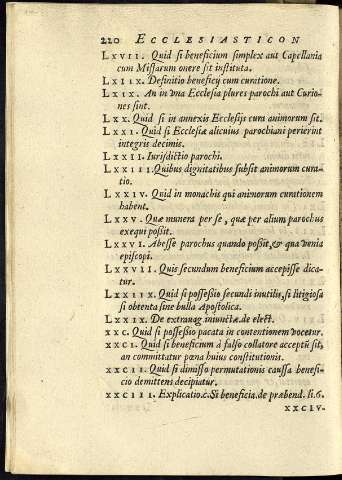 220 ECCLESIASTICON
LXVII. Quid si beneficium simplex aut Capellania
cum Missarum onere sit instituta.
LXIIX. Definitio beneficij cum curatione.
LXIX. An in vna Ecclesia plures parochi aut Curio-
nes sint.
LXX. Quid si in annexis Ecclesijs cura animorum sit.
LXXI. Quid si Ecclesiæ alicuius parochiani perierint
integris decimis.
LXXII. Iurisdictio parochi.
LXXIII. Quibus dignitatibus subsit animorum cura-
tio.
LXXIV. Quid in monachis qui animorum curationem
habent.
LXXV. Quæ munera per se, quæ per alium parochus
exequi possit.
LXXVI. Abesse parochus quando possit, & qua venia
episcopi.
LXXVII. Quis secundum beneficium accepisse dica-
tur.
LXXIIX. Quid si possessio secundi inutilis, si litigiosa
si obtenta sine bulla Apostolica.
LXXIX. De extrauag. iniunctæ. de elect.
XXC. Quid si possessio pacata in contentionem vocetur.
XXCI. Quid si beneficium à falso collatore acceptũ sit,
an committatur pœna huius constitutionis.
XXCII. Quid si dimisso permutationis caussa benefi-
cio demittens decipiatur.
XXCIII. Explicatio. c. Si beneficia. de præbend. li. 6.
XXCIV-